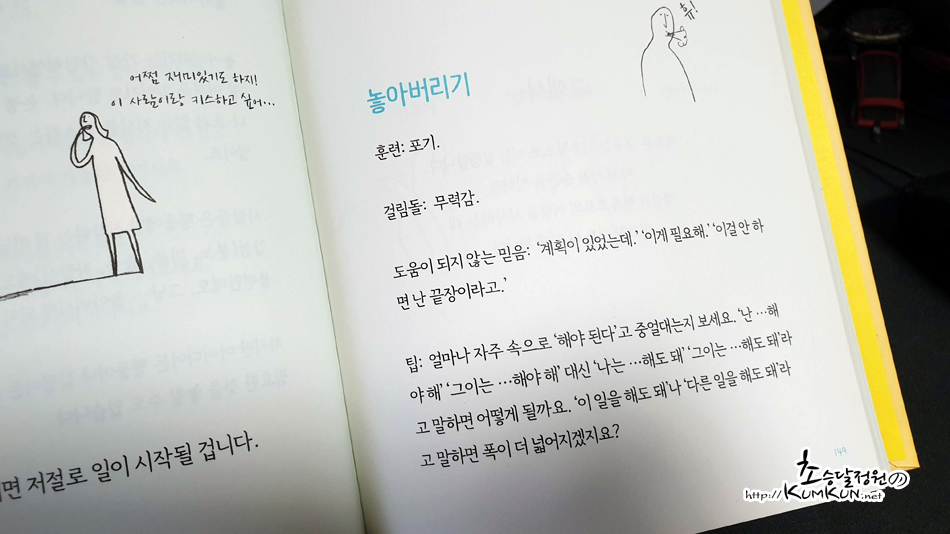 어쩜 재미있기도 하지!
이 사람이랑 키스하고 싶어...
면 저절로 일이 시작될 겁니다.
휴!
놓아버리기
훈련: 포기.
걸림돌: 무력감.
도움이 되지 않는 믿음: ‘계획이 있었는데.’ ‘이게 필요해.’ ‘이걸 안 하
면 난 끝장이라고.’
팁: 얼마나 자주 속으로 ‘해야 된다’고 중얼대는지 보세요. ‘난 …해
야 해’ ‘그이는 …해야 해’ 대신 ‘나는 …해도 돼’ ‘그이는 …해도 돼’라
고 말하면 어떻게 될까요. ‘이 일을 해도 돼’나 ‘다른 일을 해도 돼’라
고 말하면 폭이 더 넓어지겠지요?
149
초승달정원の
http://KUMKUN.net